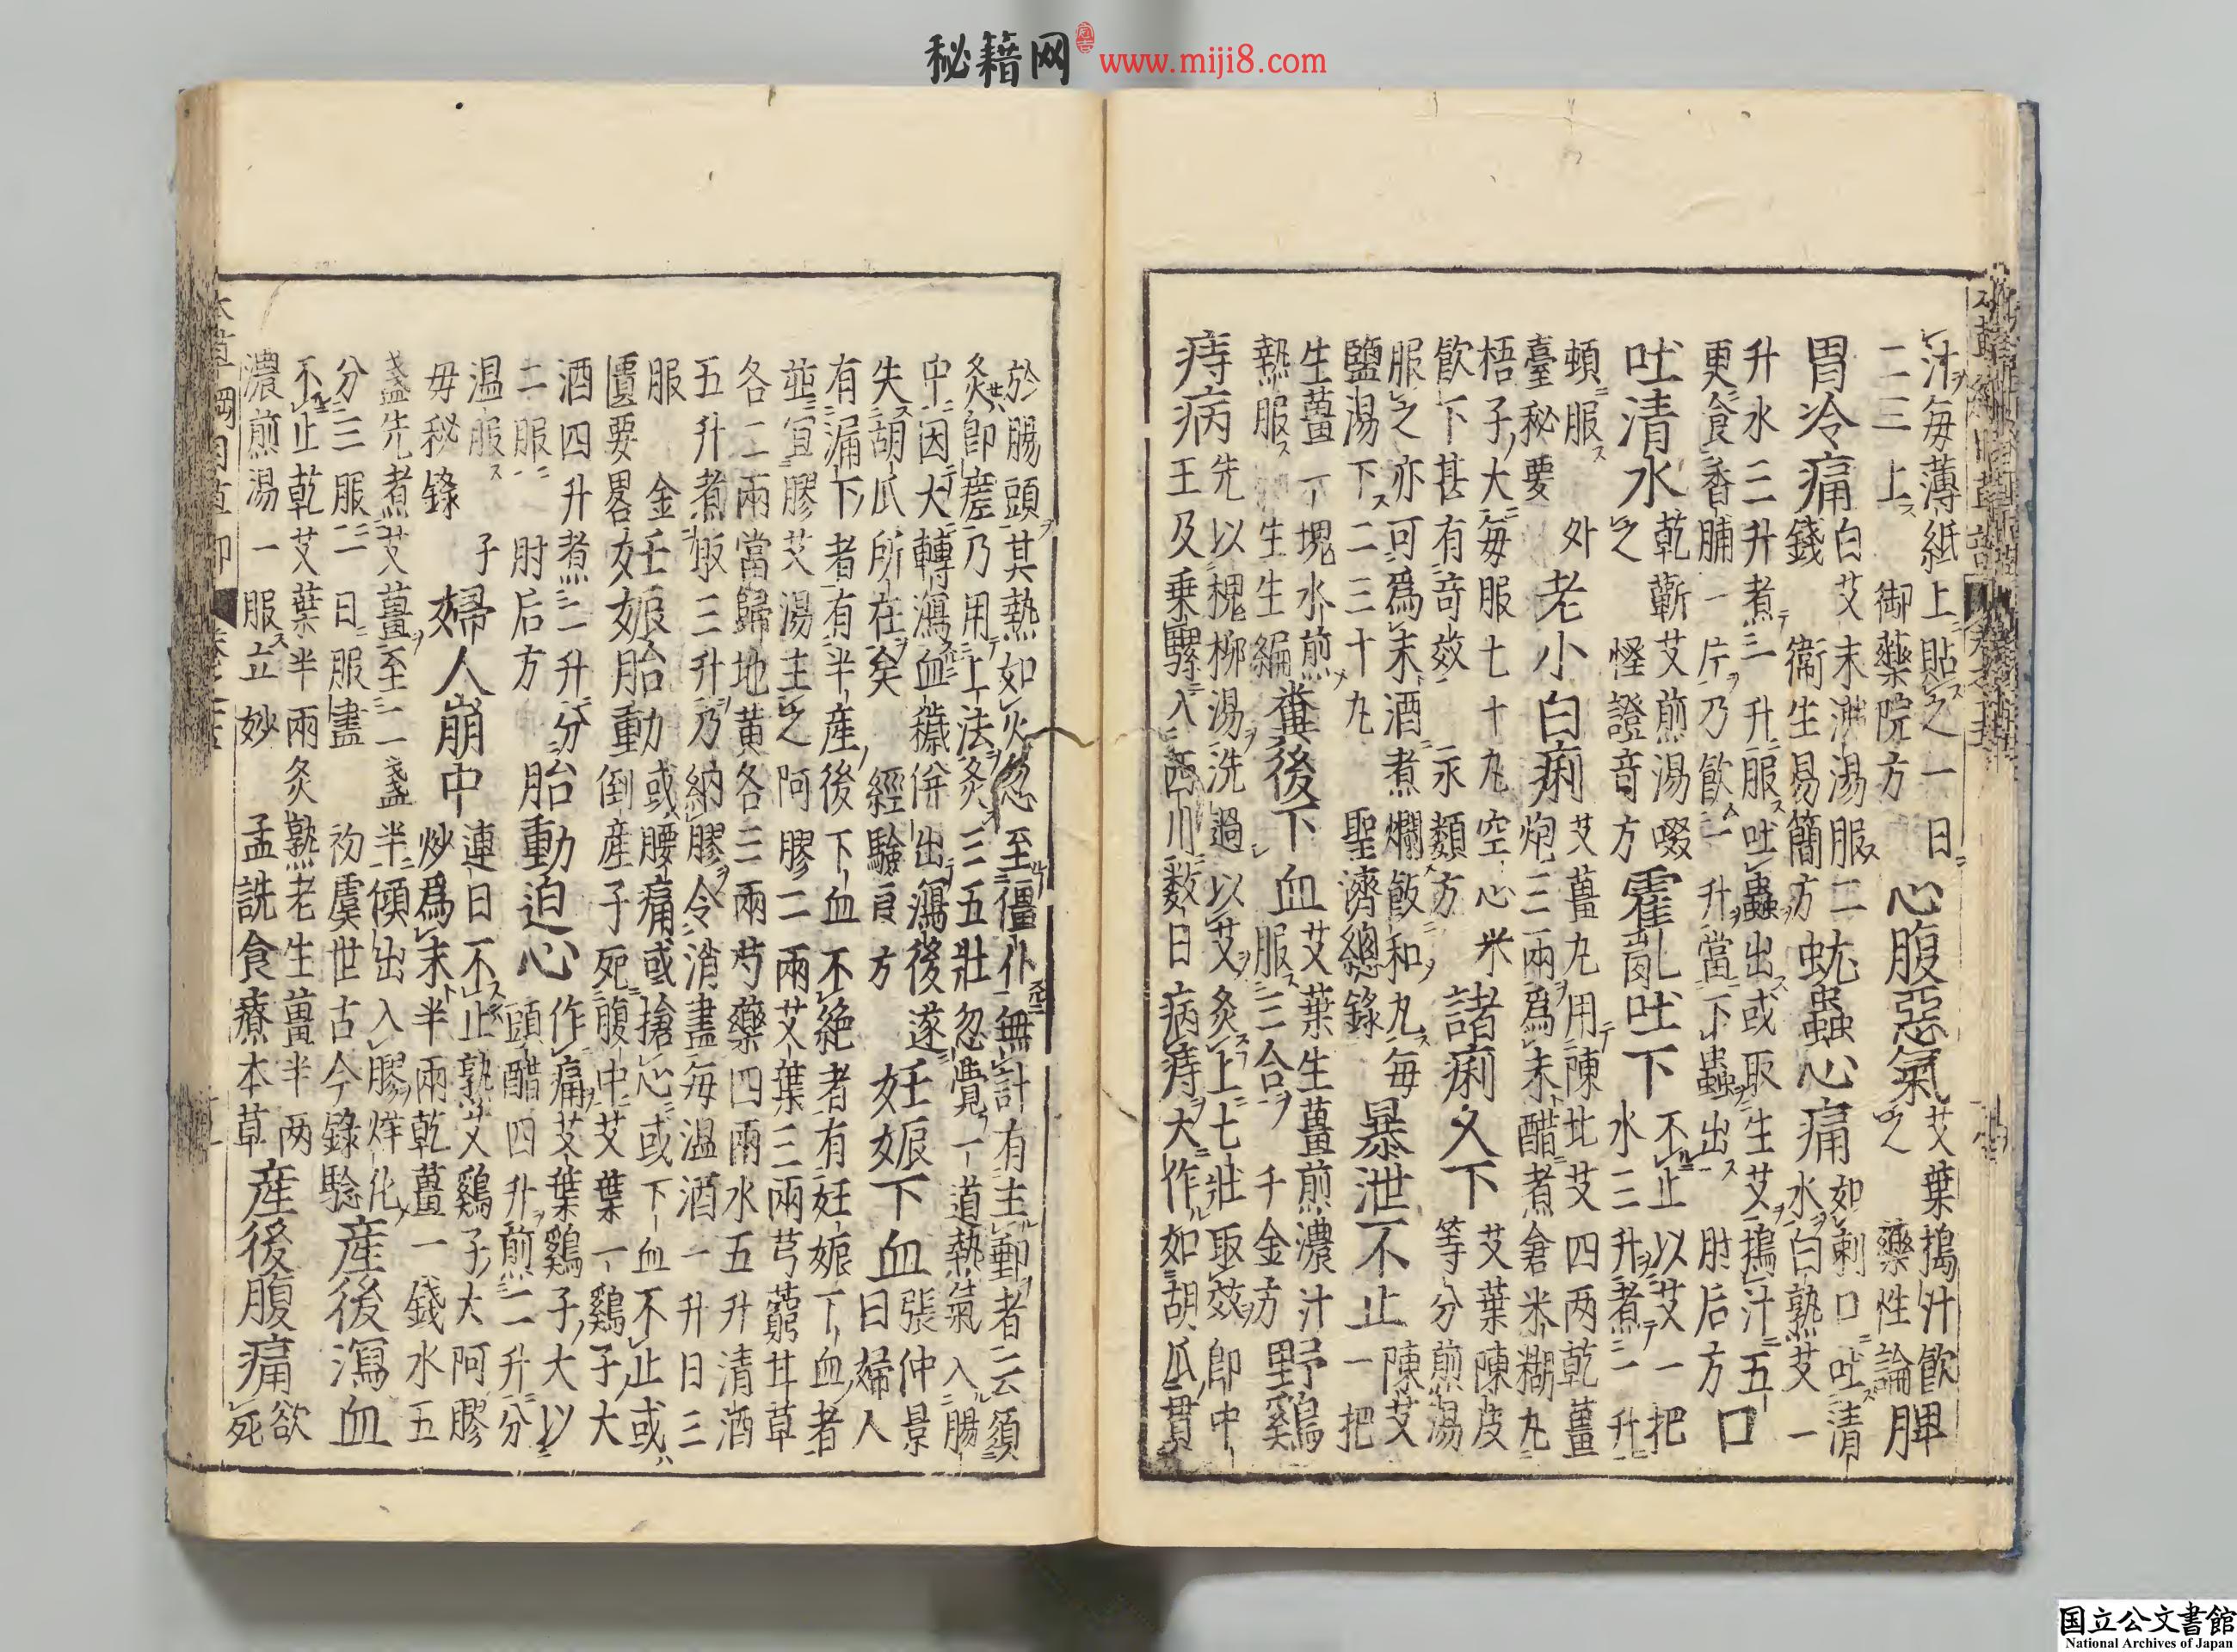 汁毎薄紙上貼之一日
二三上　御藥院方
心腹惡氣
艾葉搗汁飲
之　藥性論
脾
胃冷痛
白艾末沸湯服二
錢　衞生易簡方
蚘蟲心痛
如刺口吐清
水白熟艾一
升水三升煮一升服吐蟲出或取生艾搗汁五
更食香脯一片乃飲一升當下蟲出　肘后方
口
吐清水
乾蘄艾煎湯啜
之　怪證竒方
霍亂吐下
不止以艾一把
水三升煮一升
頓服　外
臺秘要
老小白痢
艾薑丸用陳北艾四两乾薑
炮三兩爲末醋煮倉米糊丸
梧子大毎服七十丸空心米
飲下甚有竒效　永類方
諸痢久下
艾葉陳皮
等分煎湯
服之亦可爲末酒煮爛飯和丸毎
鹽湯下二三十丸　聖濟總錄
暴泄不止
陳艾
一把
生薑一塊水煎
熱服　生生編
糞後下血
艾葉生薑煎濃汁
服三合　千金方
野鷄
痔病
先以槐柳湯洗過以艾灸上七壯取效郎中
王及乗騾入西川數日病痔大作如胡瓜貫
於腸頭其熱如火忽至僵仆無計有主郵者云須
灸即瘥乃用上法灸三五壯忽覺一道熱氣入腸
中因大轉瀉血穢併出瀉後遂
失胡瓜所在矣　經驗良方
妊娠下血
張仲景
曰婦人
有漏下者有半產後下血不絶者有妊娠下血者
並宜膠艾湯主之阿膠二兩艾葉三兩芎藭甘草
各二兩當歸地黄各三兩芍藥四兩水五升清酒
五升煮取三升乃納膠令消盡毎温酒一升日三
服　金
匱要畧
妊娠胎動
或腰痛或搶心或下血不止或
倒產子死腹中艾葉一鷄子大
酒四升煮二升分
二服　肘后方
胎動迫心
作痛艾葉鷄子大以
頭醋四升煎二升分
温服　子
毋秘錄
婦人崩中
連日不止熟艾鷄子大阿膠
炒爲末半兩乾薑一錢水五
盞先煮艾薑至二盞半傾出入膠烊化
分三服一日服盡　初虞世古今錄驗
產後瀉血
不止乾艾葉半兩炙熟老生薑半两
濃煎湯一服立妙　孟詵食療本草
產後腹痛
欲
死
秘籍网 www.miji8.com
国立公文書館
National Archives of Japan